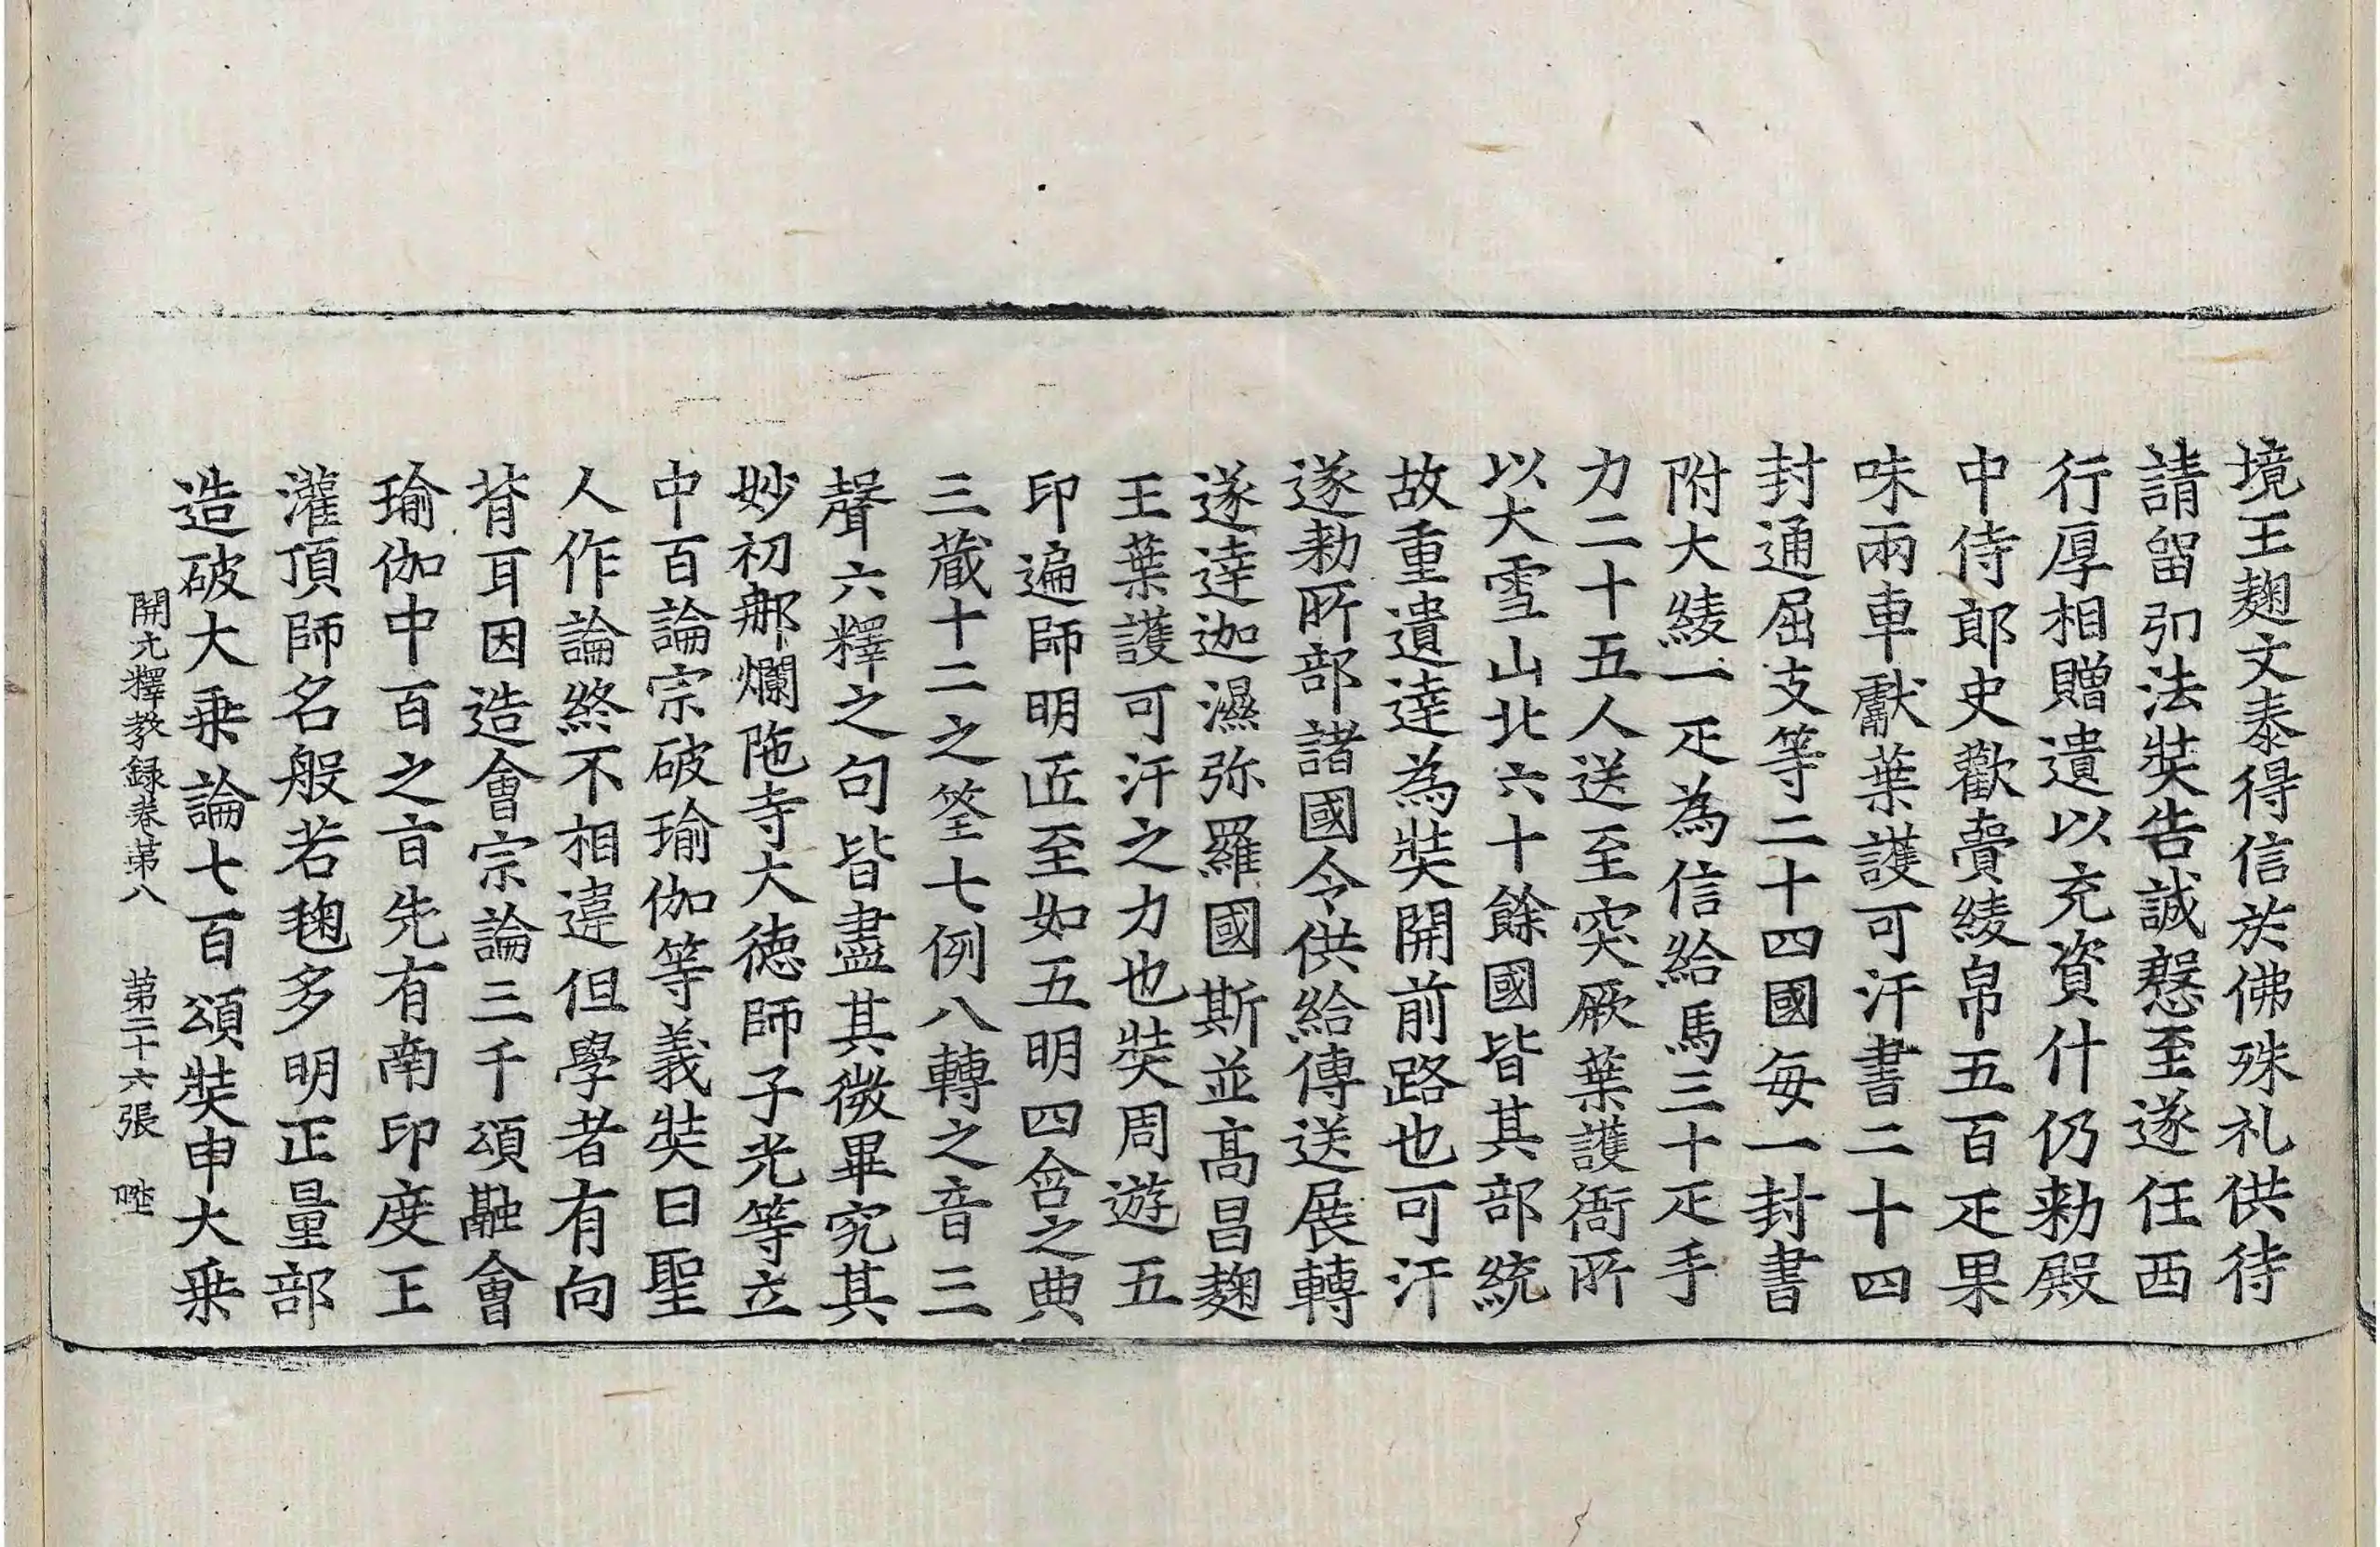 境王麹文泰得信於佛殊礼供待
請留弘法奘告誠懇至遂任西
行厚相贈遺以充資什仍勑殿
中侍郎史歡賷綾帛五百疋果
味兩車獻葉護可汗書二十四
封通屈支等二十四國每一封書
附大綾一疋為信給馬三十疋手
力二十五人送至突厥葉護衙所
以大雪山北六十餘國皆其部統
故重遺達為奘開前路也可汗
遂勑所部諸國令供給傳送展轉
遂達迦濕弥羅國斯並髙昌麹
王葉護可汗之力也奘周遊五
印遍師明匠至如五明四含之典
三蔵十二之筌七例八轉之音三
聲六釋之句皆盡其微畢究其
妙初那爛陁寺大德師子光等立
中百論宗破瑜伽等義奘曰聖
人作論終不相違但學者有向
背耳因造會宗論三千頌融會
瑜伽中百之㫖先有南印度王
灌頂師名般若毱多明正量部
造破大乗論七百頌奘申大乗
開元釋教録卷第八 第二十六張